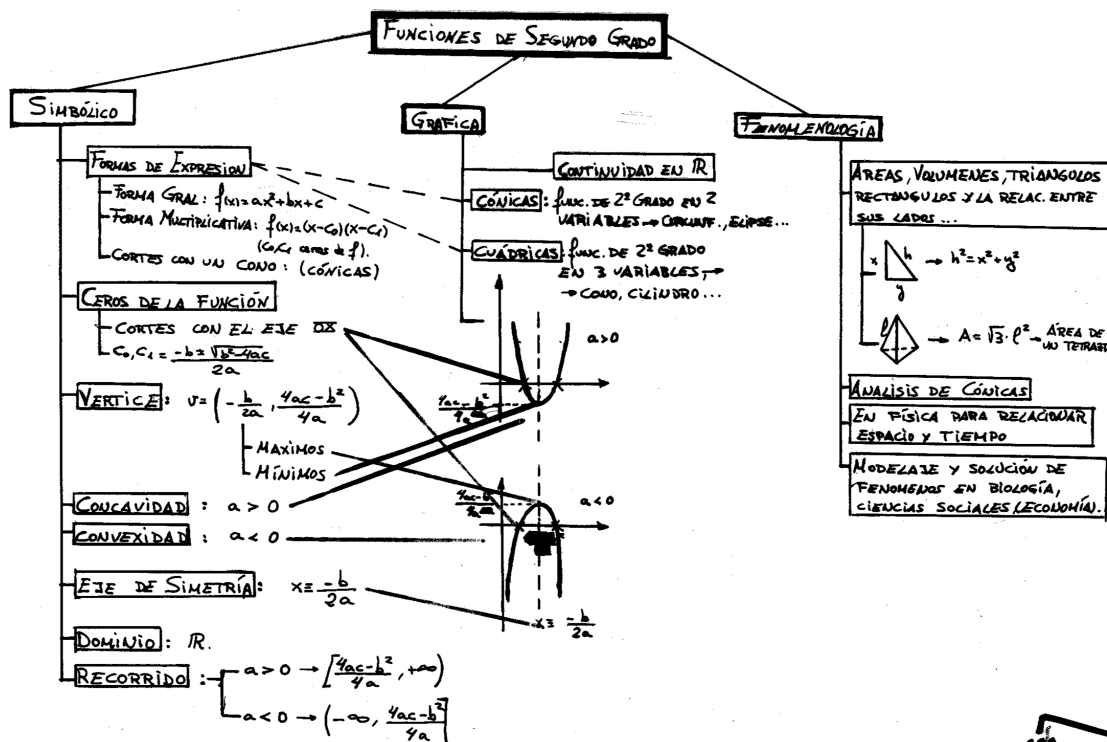 FUNCIONES DE SEGUNDO GRADO
SIMBÓLICO
FORMAS DE EXPRESION
FORMA GRAL: f(x)=ax²+bx+c
FORMA MULTIPLICATIVA: f(x)=(x-C₀)(x-C₁)
(C₀,C₁ ceros de f).
CORTES CON UN CONO: (CÓNICAS)
CEROS DE LA FUNCIÓN
CORTES CON EL EJE OX
C₀, C₁ = (-b ± √(b²-4ac))/2a
VERTICE: v = (-b/2a, (4ac-b²)/4a)
MAXIMOS
MÍNIMOS
CONCAVIDAD: a > 0
CONVEXIDAD: a < 0
EJE DE SIMETRÍA: x ≡ -b/2a
DOMINIO: ℝ.
RECORRIDO:
a > 0 → [(4ac-b²)/4a, +∞)
a < 0 → (-∞, (4ac-b²)/4a]
GRAFICA
CONTINUIDAD EN ℝ
CÓNICAS: func. DE 2º GRADO EN 2
VARIABLES → CIRCUNF., ELIPSE...
CUÁDRICAS: func. DE 2º GRADO
EN 3 VARIABLES, →
→ CONO, CILINDRO...
a > 0
(4ac-b²)/4a
a < 0
x ≡ -b/2a
FENOMENOLOGÍA
ÁREAS, VOLUMENES, TRIANGULOS
RECTANGULOS Y LA RELAC. ENTRE
SUS LADOS...
x h → h² = x² + y²
y
l → A = √3 · l² → ÁREA DE
UN
ANALISIS DE CÓNICAS
EN FÍSICA PARA RELACIONAR
ESPACIO Y TIEMPO
MODELAJE Y SOLUCIÓN DE
FENOMENOS EN BIOLOGÍA,
CIENCIAS SOCIALES (ECONOMÍA)..